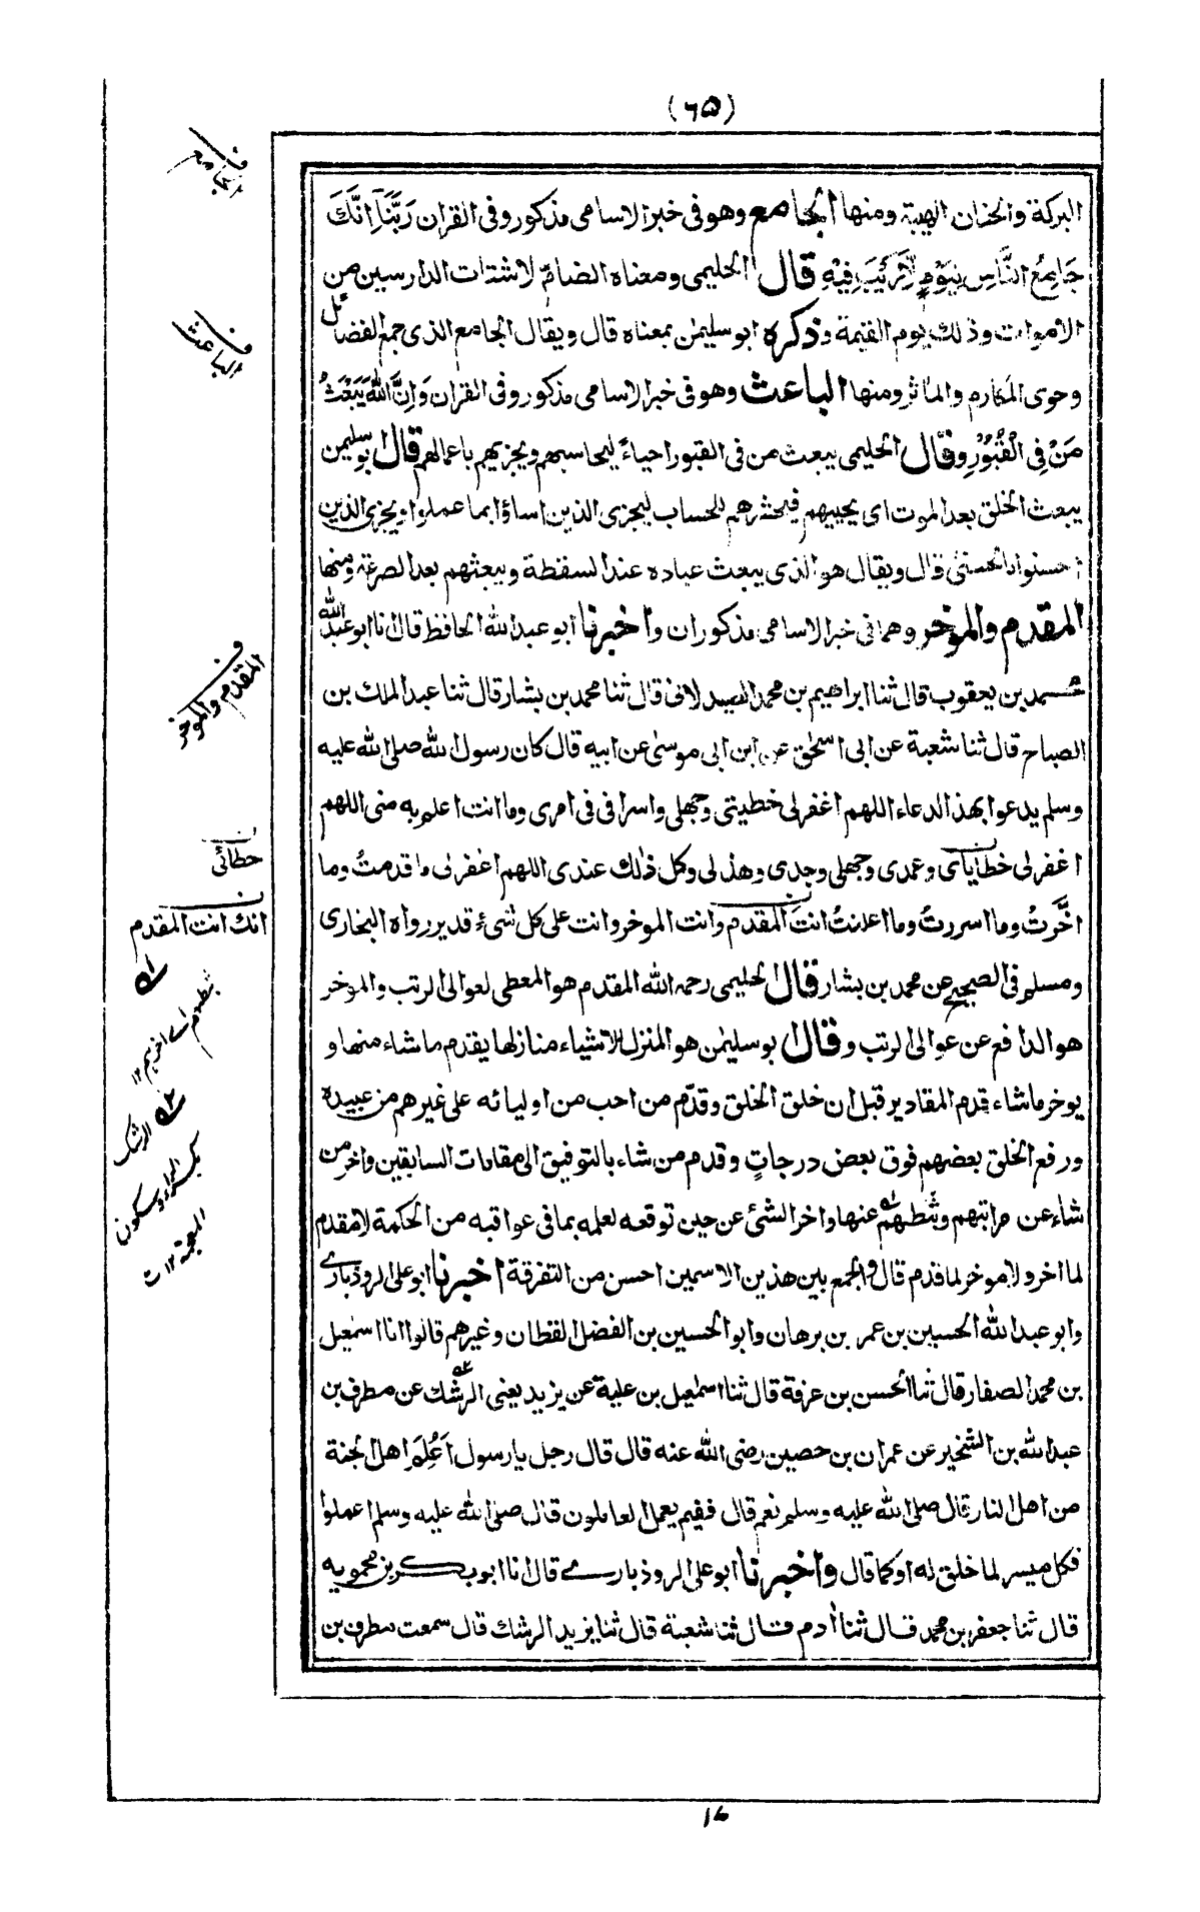 (٦٥)
البركة والحنان الهيبة ومنها الجامع وهو فى خبر الاسامى مذكور وفى القران رَبَّنَا اِنَّكَ
جَامِعُ النَّاسِ لِيَوْمٍ لَّا رَيْبَ فِيْهِ قال الحليمى ومعناه الضامّ لاشتات الدارسين من
الاموات وذلك يوم القيمة وذكره ابو سليمن بمعناه قال ويقال الجامع الذى جمع الفضائل
وحوى المكارم والماثر ومنها الباعث وهو فى خبر الاسامى مذكور وفى القران وَاِنَّ اللهَ يَبْعَثُ
مَنْ فِى الْقُبُوْرِ وقال الحليمى يبعث من فى القبور احياءً ليحاسبهم ويجزيهم باعمالهم قال ابو سليمن
يبعث الخلق بعد الموت اى يحييهم فيحشرهم للحساب ليجزى الذين اساؤا بما عملوا ويجزى الذين
احسنوا بالحسنى قال ويقال هو الذى يبعث عباده عند السقطة ويبعثهم بعد الصرعة ومنها
المقدم والموخر وهما فى خبر الاسامى مذكوران واخبرنا ابو عبد الله الحافظ قال انا ابو عبد الله
محمد بن يعقوب قال ثنا ابراهيم بن محمد الصيدلانى قال ثنا محمد بن بشار قال ثنا عبد الملك بن
الصباح قال ثنا شعبة عن ابى اسحٰق عن ابن ابى موسىٰ عن ابيه قال كان رسول الله صلى الله عليه
وسلم يدعوا بهذ الدعاء اللهم اغفر لى خطيئتى وجهلى واسرافى فى امرى وما انت اعلم به منى اللهم
اغفر لى خطاياى وعمدى وجهلى وجدى وهذلى وكل ذٰلك عندى اللهم اغفر لى ما قدمتُ وما
اخَّرتُ وما اسررتُ وما اعلنتُ انتَ المقدم وانت الموخر وانت على كل شىءٍ قدير رواه البخارى
ومسلم فى الصحيح عن محمد بن بشار قال الحليمى رحمه الله المقدم هو المعطى لعوالى الرتب والموخر
هو الدافع عن عوالى الرتب وقال ابو سليمٰن هو المنزل للاشياء منازلها يقدم ما شاء منها و
يوخر ما شاء قدم المقادير قبل ان خلق الخلق وقدّم من احب من اوليائه على غيرهم من عبيده
ورفع الخلق بعضهم فوق بعض درجاتٍ وقدم من شاء بالتوفيق الى مقامات السابقين واخر من
شاء عن مراتبهم وثبطهم عنها واخر الشئ عن حين توقعه لعلمه بما فى عواقبه من الحكمة لا مقدم
لما اخر ولا موخر لما قدم قال والجمع بين هذين الاسمين احسن من التفرقة اخبرنا ابو على الروذبارى
وابو عبد الله الحسين بن عمر بن برهان وابو الحسين بن الفضل القطان وغيرهم قالوا انا اسمٰعيل
بن محمد الصفار قال ثنا الحسن بن عرفة قال ثنا اسمٰعيل بن علية عن يزيد يعنى الرشك عن مطرف بن
عبد الله بن الشخير عن عمران بن حصين رضى الله عنه قال قال رجل يا رسول اَعُلِمَ اهل الجنة
من اهل النار قال صلى الله عليه وسلم نعم قال ففيم يعمل العاملون قال صلى الله عليه وسلم اعملوا
فكل ميسر لما خلق له او كما قال واخبرنا ابو على الروذبارى قال انا ابو بكر بن محمويه
قال ثنا جعفر بن محمد قال ثنا اٰدم قال ثنا شعبة قال ثنا يزيد الرشك قال سمعت مطرف بن
ف
الجامع
ف
الباعث
ف
المقدم والموخر
ن
خطائى
ن
انك انت المقدم
ثبطهم اے اخرهم ١٢
الرشك
بكسر الراء وسكون
المعجمة ١٢
١٤